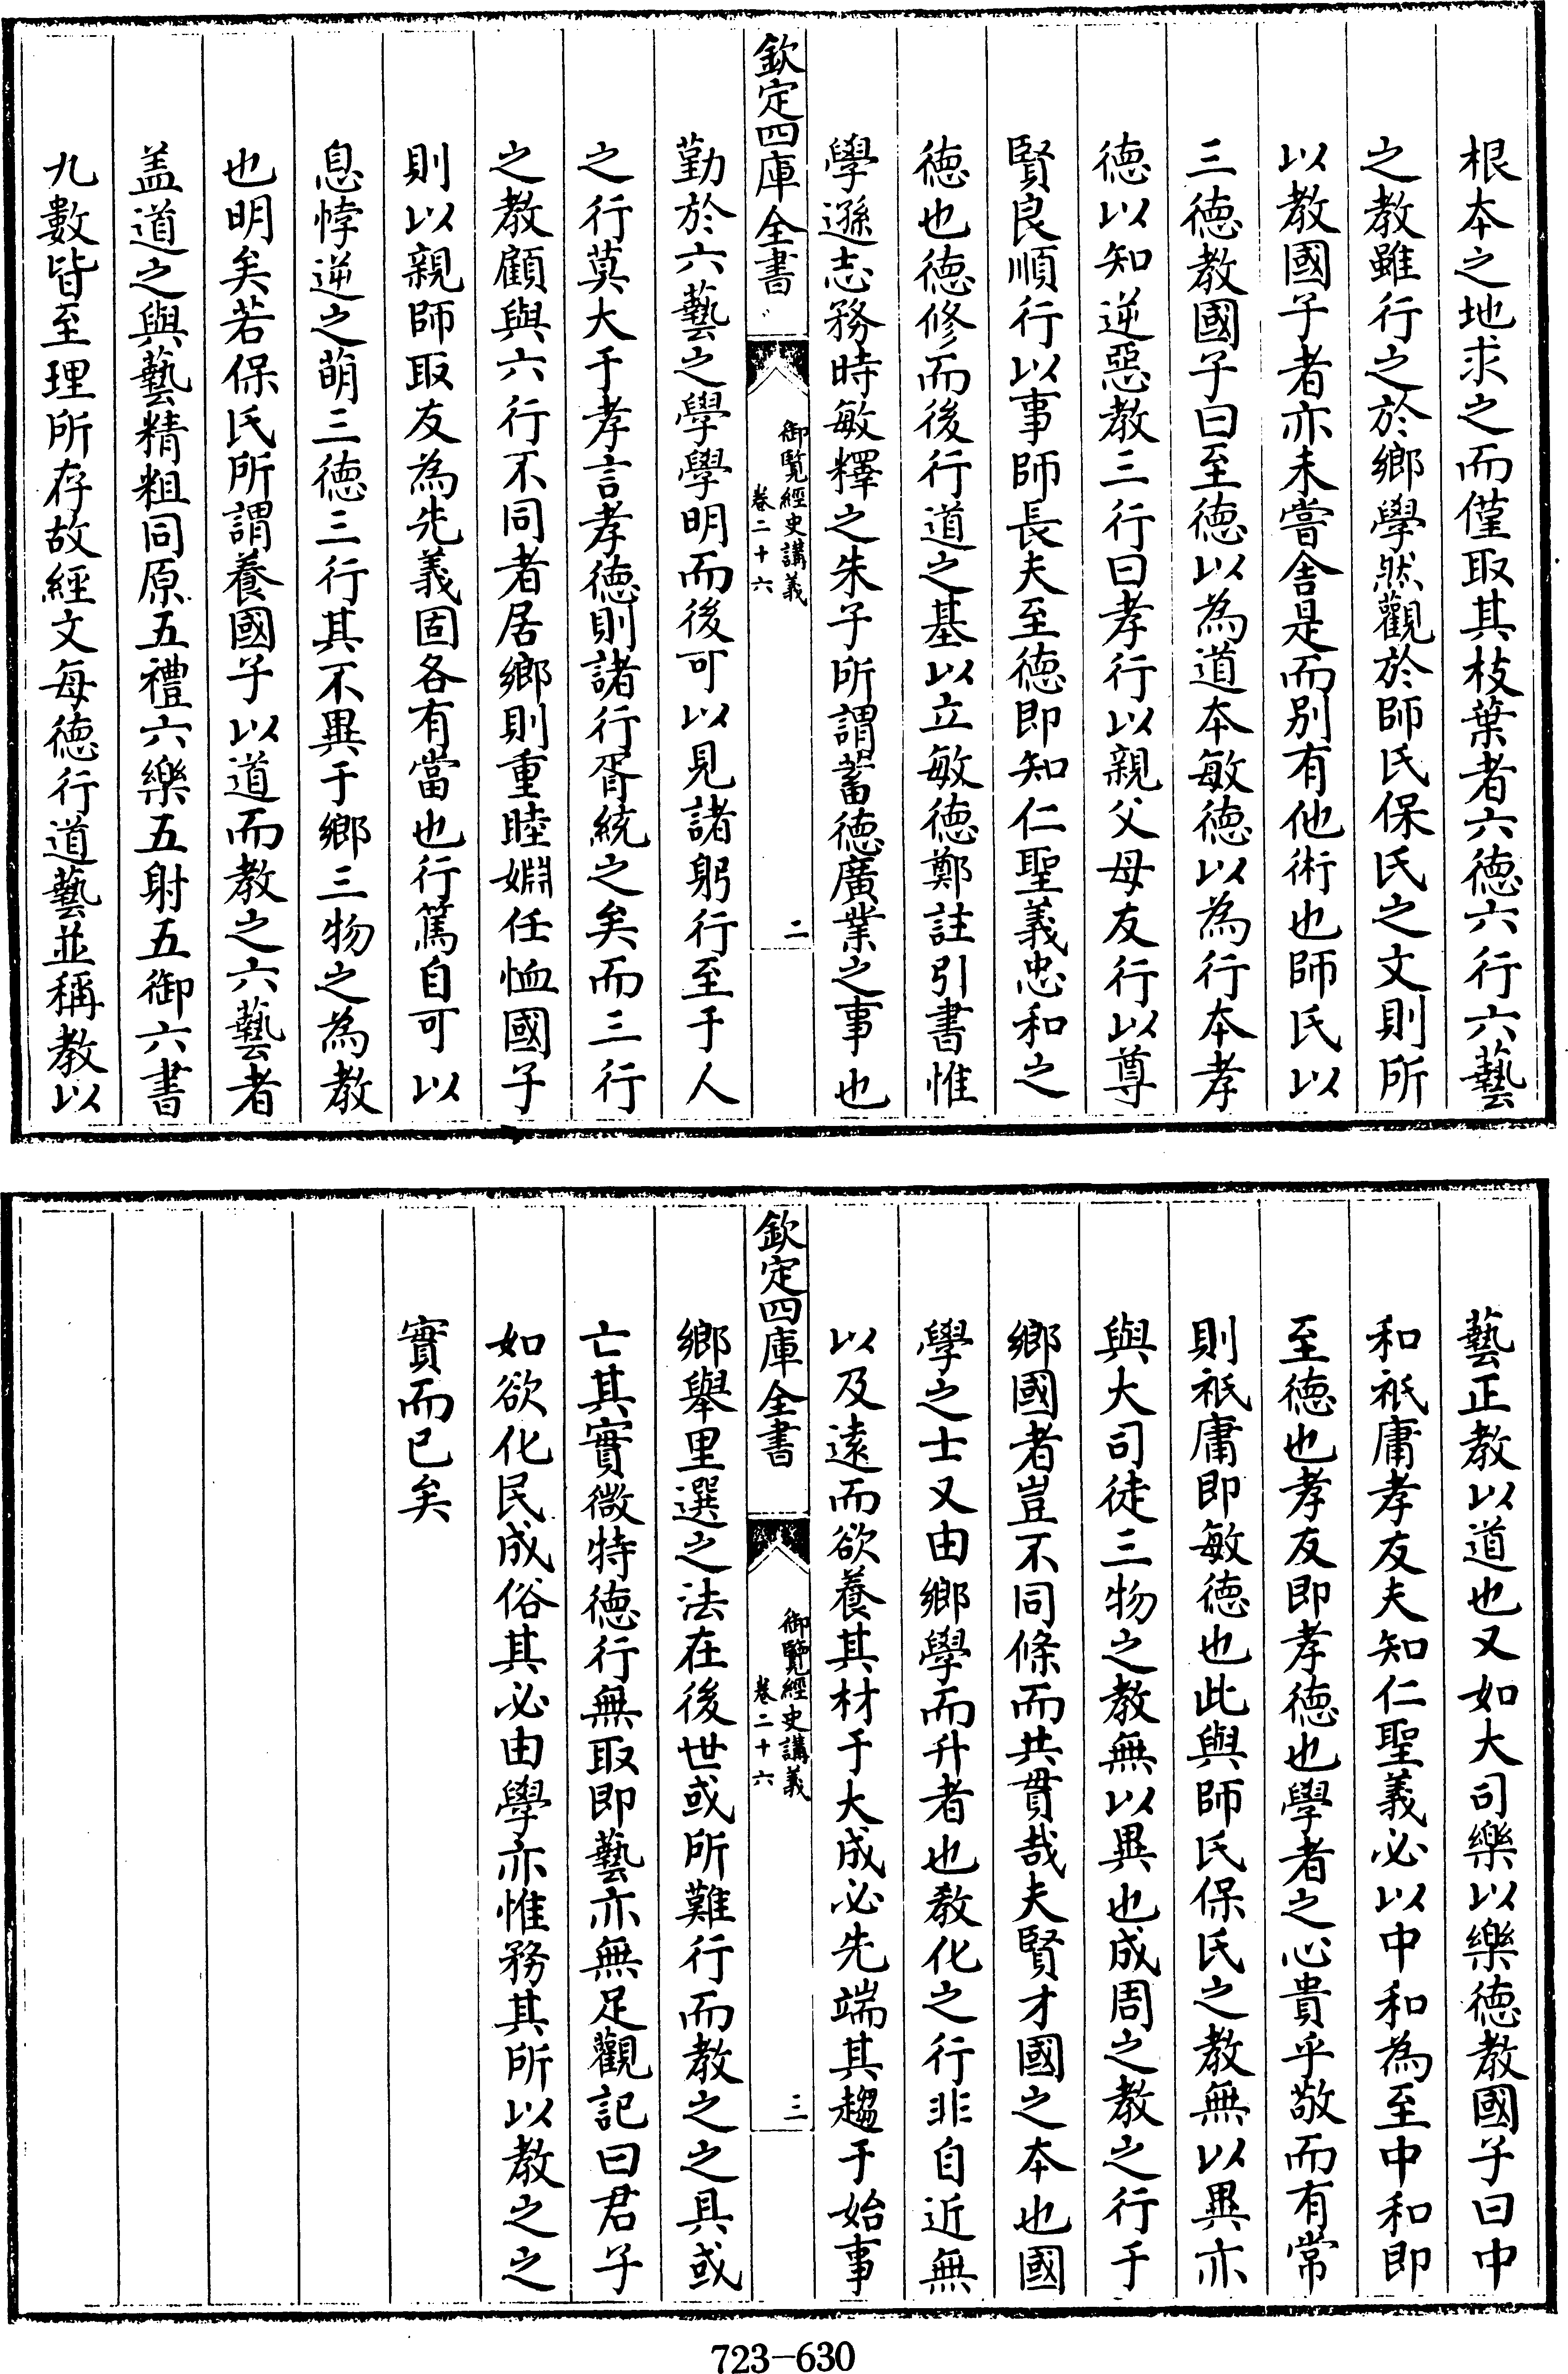 根本之地求之而僅取其枝葉者六徳六行六藝
之教雖行之於鄉學然觀於師氏保氏之文則所
以教國子者亦未嘗舎是而别有他術也師氏以
三徳教國子曰至徳以為道本敏徳以為行本孝
徳以知逆惡教三行曰孝行以親父母友行以尊
賢良順行以事師長夫至徳即知仁聖義忠和之
徳也徳修而後行道之基以立敏徳鄭註引書惟
學遜志務時敏釋之朱子所謂蓄徳廣業之事也
欽定四庫全書
御覽經史講義
卷二十六
二
勤於六藝之學學明而後可以見諸躬行至于人
之行莫大于孝言孝徳則諸行胥統之矣而三行
之教顧與六行不同者居鄉則重睦婣任恤國子
則以親師取友為先義固各有當也行篤自可以
息悖逆之萌三徳三行其不異于鄉三物之為教
也明矣若保氏所謂養國子以道而教之六藝者
盖道之與藝精粗同原五禮六樂五射五御六書
九數皆至理所存故經文每徳行道藝並稱教以
藝正教以道也又如大司樂以樂徳教國子曰中
和祗庸孝友夫知仁聖義必以中和為至中和即
至徳也孝友即孝徳也學者之心貴乎敬而有常
則祗庸即敏徳也此與師氏保氏之教無以異亦
與大司徒三物之教無以異也成周之教之行于
鄉國者豈不同條而共貫哉夫賢才國之本也國
學之士又由鄉學而升者也教化之行非自近無
以及逺而欲養其材于大成必先端其趨于始事
欽定四庫全書
御覽經史講義
卷二十六
三
鄉舉里選之法在後世或所難行而教之之具或
亡其實微特徳行無取即藝亦無足觀記曰君子
如欲化民成俗其必由學亦惟務其所以教之之
實而已矣
723-630